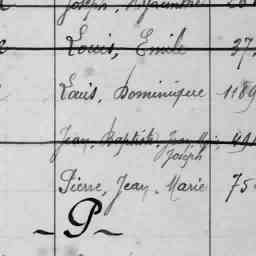 Joseph, Hyacinthe
Louis, Emile 37
Louis, Dominique 1189
Jean, Baptiste,
Joseph
Pierre, Jean, Marie 75
~ P ~